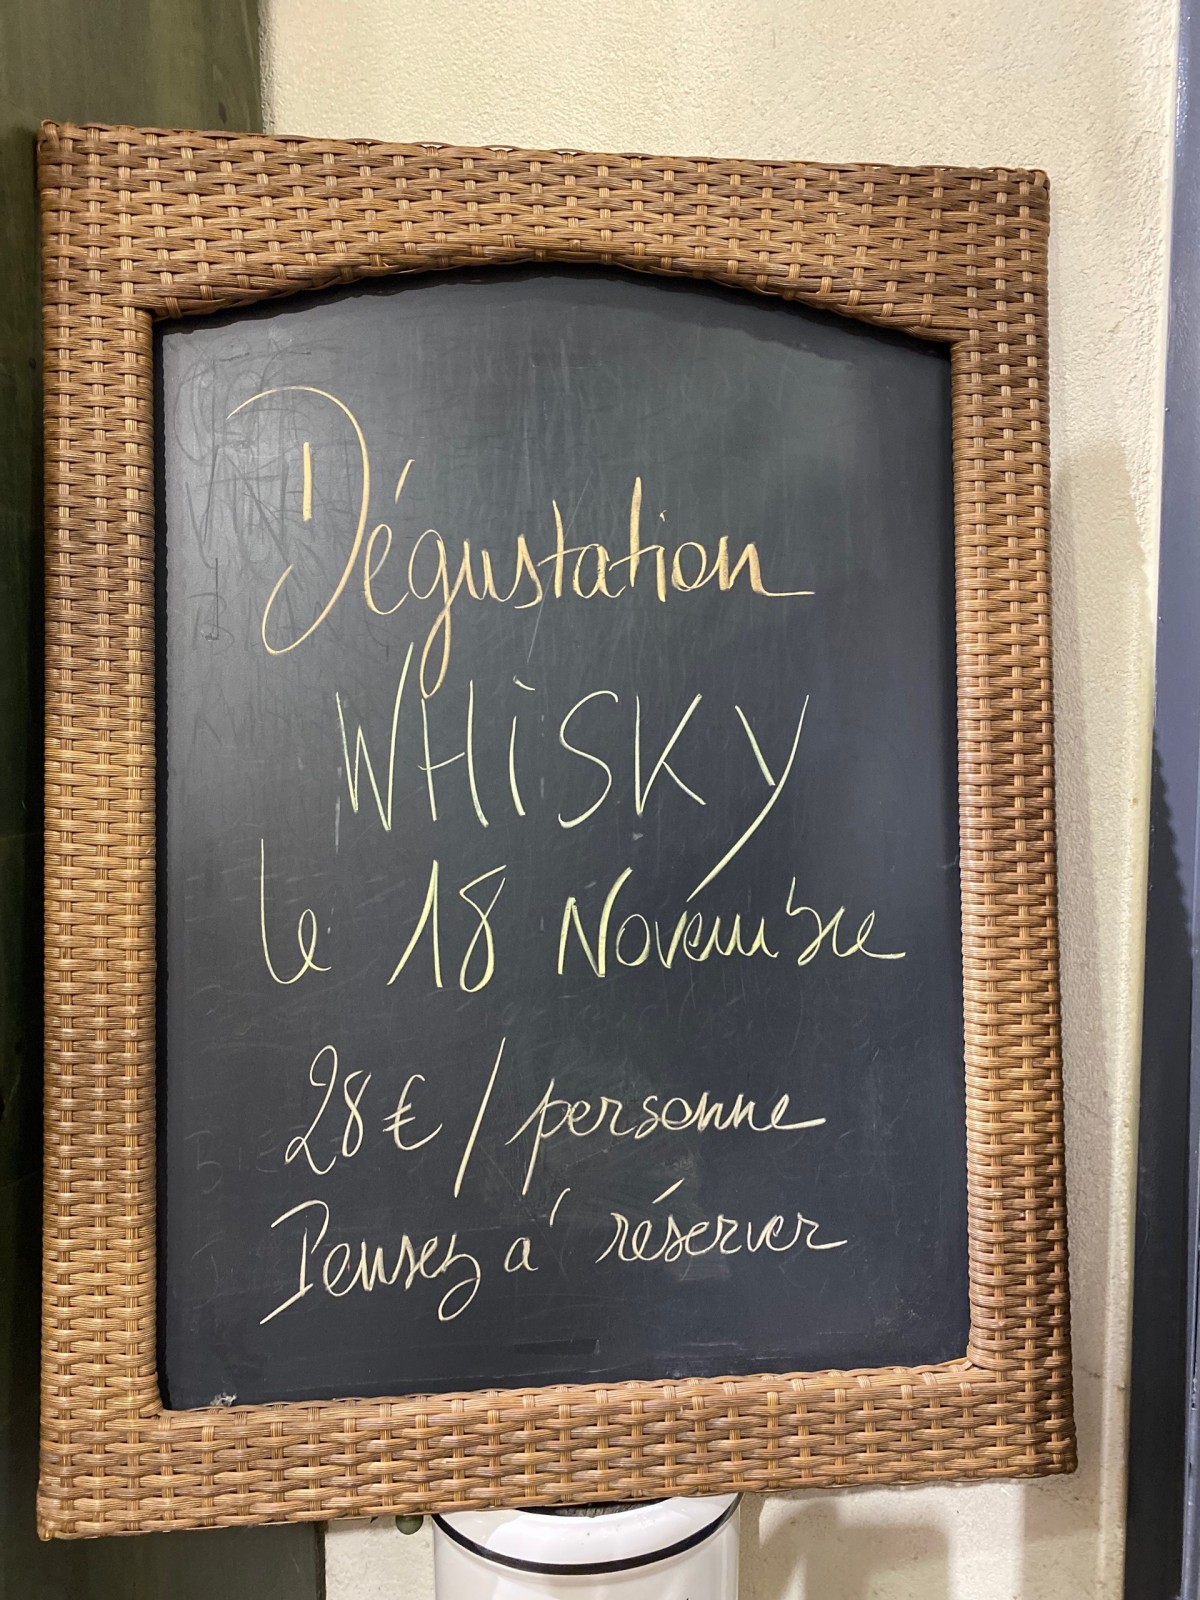 Dégustation
WHiSKY
le 18 Novembre
28€ / personne
Pensez à réserver